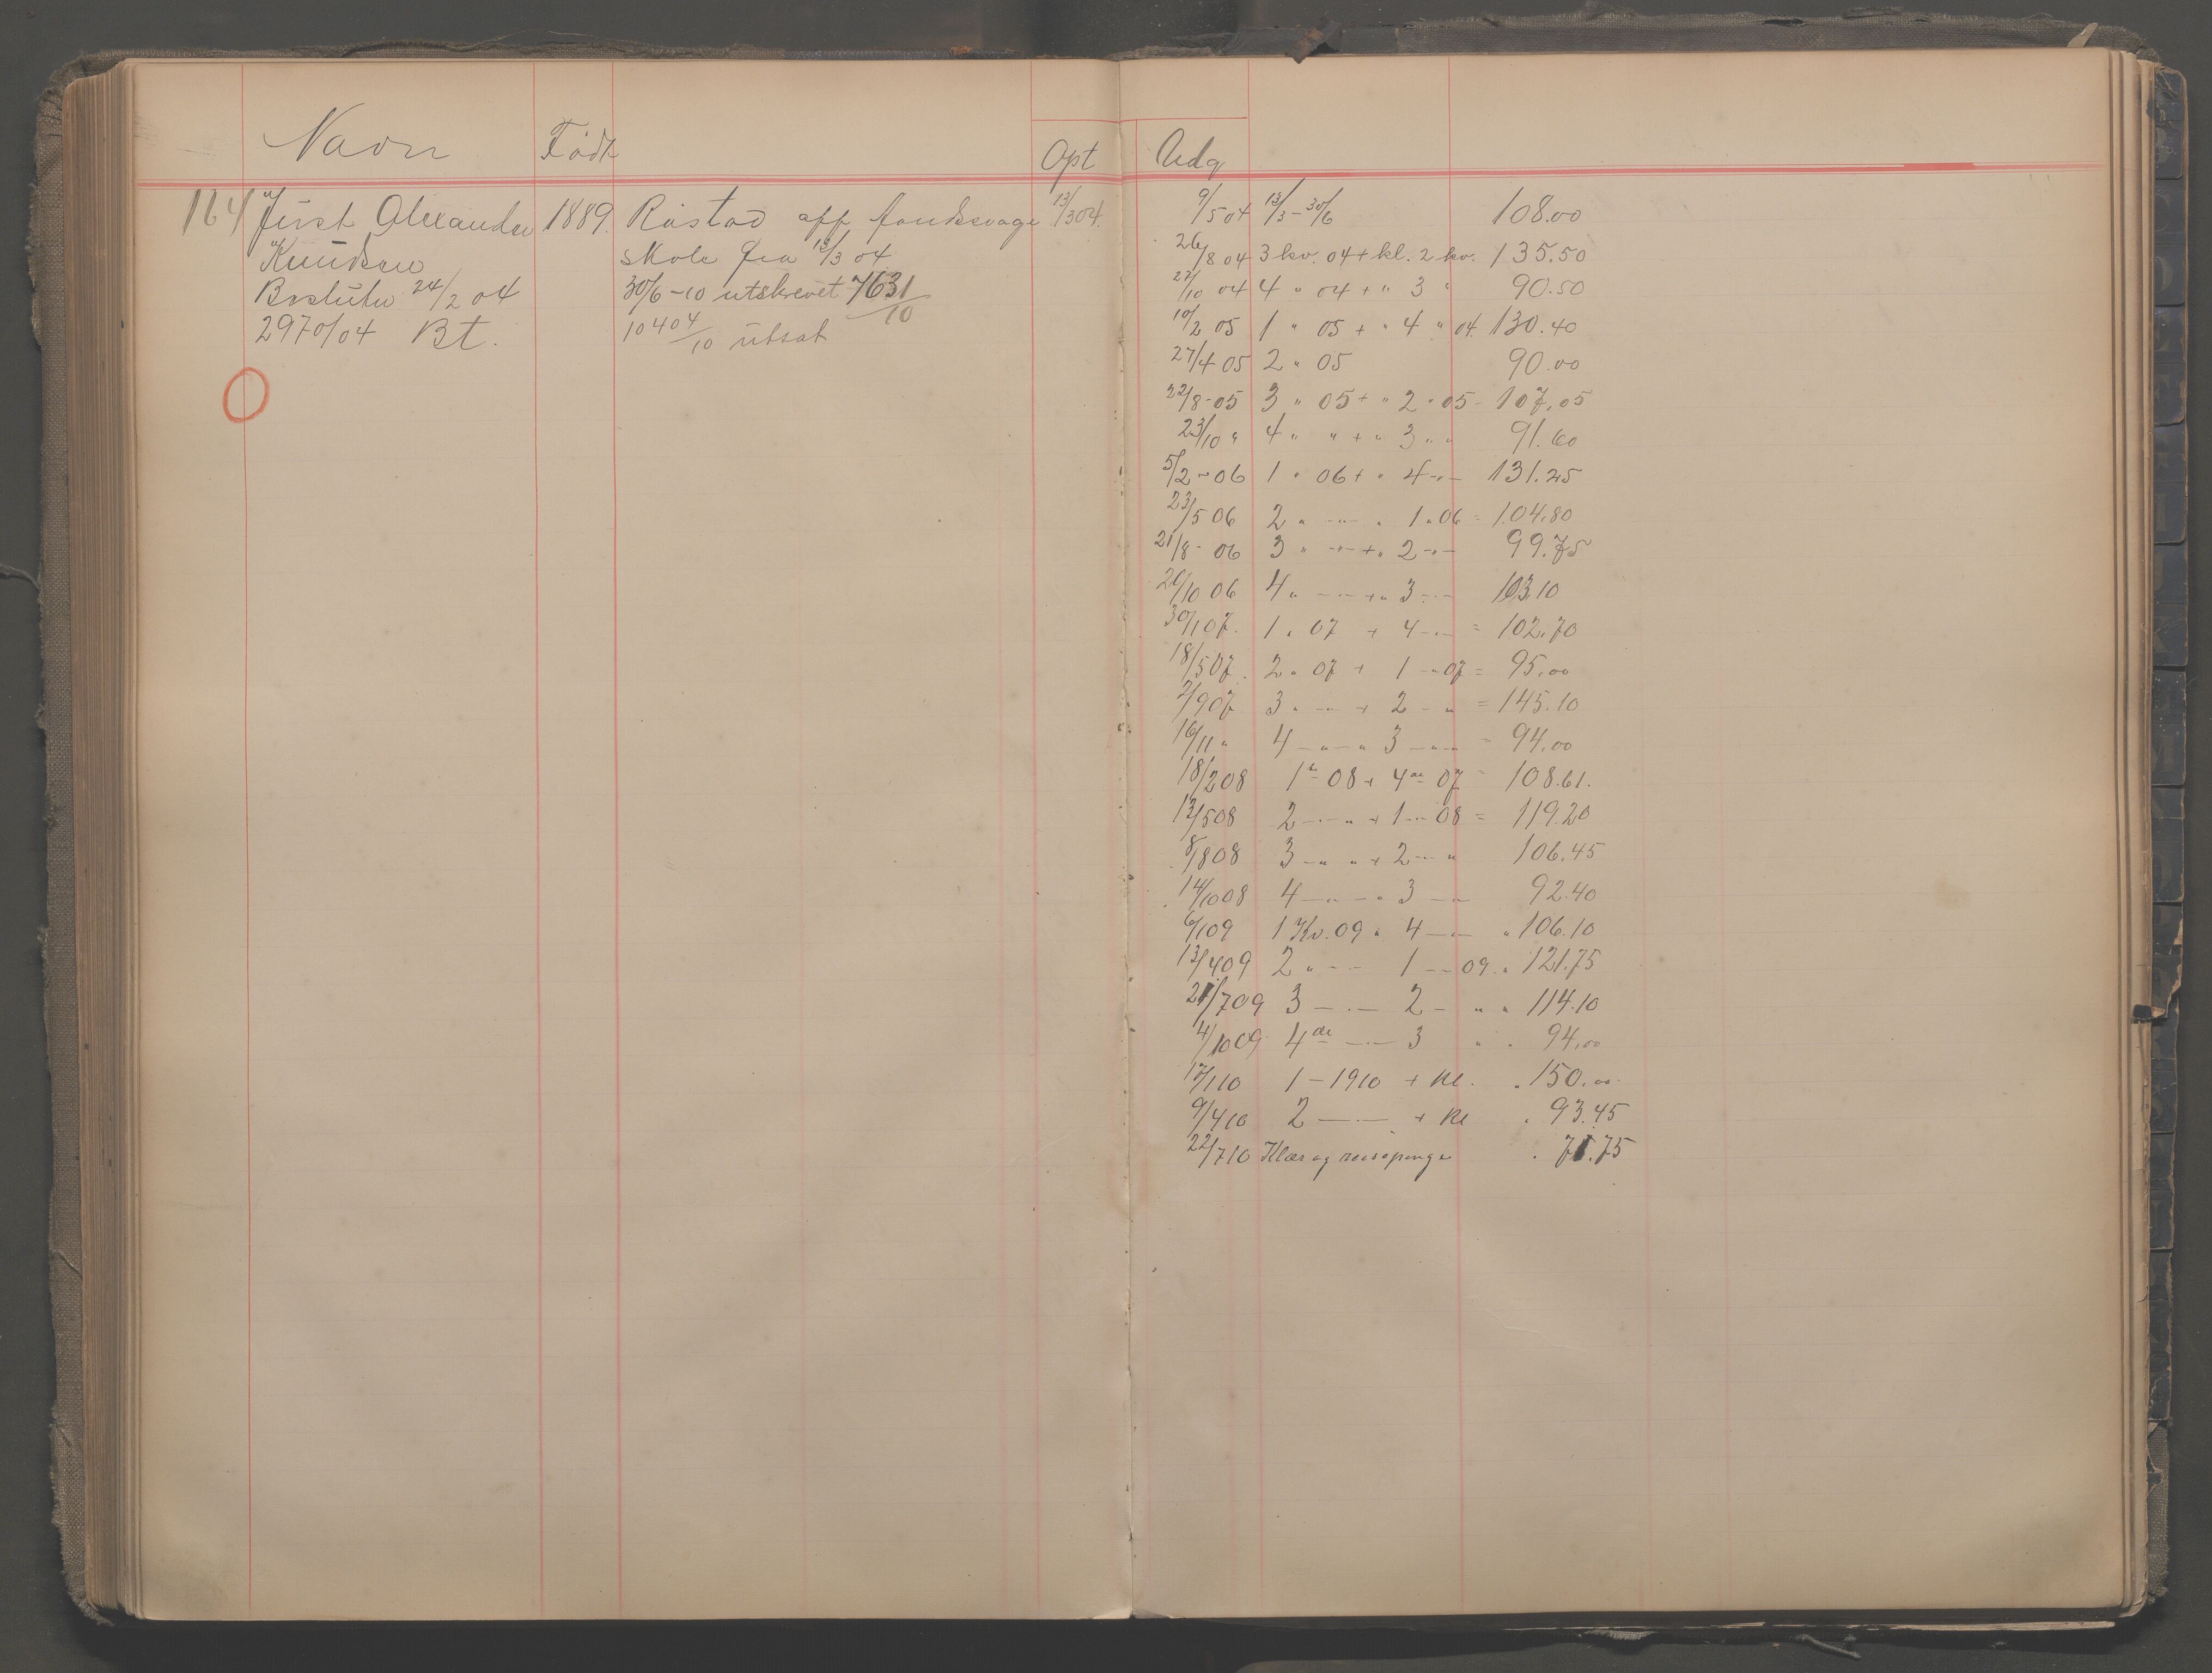 Navn Født Opt Udg
164 Just Alexander 1889. Røstad off aandssvage 13/3 04.
Knudsen skole fra 13/3 04
Beslutn 24/2 04 30/6-10 utskrevet 7631/10
2970/04 Bt. 10404/10 utsat
9/5 04 13/3-30/6 108.00
26/8 04 3 kv. 04 + kl. 2 kv. 135.50
22/10 04 4 " 04 + " 3 " 90.50
10/2 05 1 " 05 + " 4 " 04. 130.40
27/4 05 2 " 05 90.00
22/8-05 3 " 05 + " 2 " 05 - 107,05
23/10 " 4 " " + " 3 " " 91.60
5/2-06 1 " 06 + " 4 -"- 131.25
23/5 06 2 " -"- " 1 " 06 = 104,80
21/8-06 3 " -"- + " 2 -"- 99.75
20/10 06 4 " -"- + " 3 -"- 103.10
30/1 07. 1 " 07 + 4 -"- = 102.70
18/5 07. 2 " 07 + 1 -"07 = 95,00
2/9 07 3 " -"- + 2 - " = 145.10
16/11 " 4 -"-" 3 -"- = 94,00
18/2 08 1ste 08 + 4de 07 = 108.61.
12/5 08 2 -"- " + 1 -"- 08 = 119.20
8/8 08 3 -" " + 2 -"- " 106.45
14/10 08 4 -"- " 3 -" 92.40
6/1 09 1 Kv. 09 " 4 -"- " 106.10
13/4 09 2 " -"- 1 -"- 09 " 121.75
21/7 09 3 -"- 2 - " " 114.10
4/10 09 4de -"- 3 " " 94,00
17/1 10 1 - 1910 + Kl. " 150,00
9/4 10 2 -"- + Kl " 93.45
22/7 10 Klær og reisepenge " 71.75